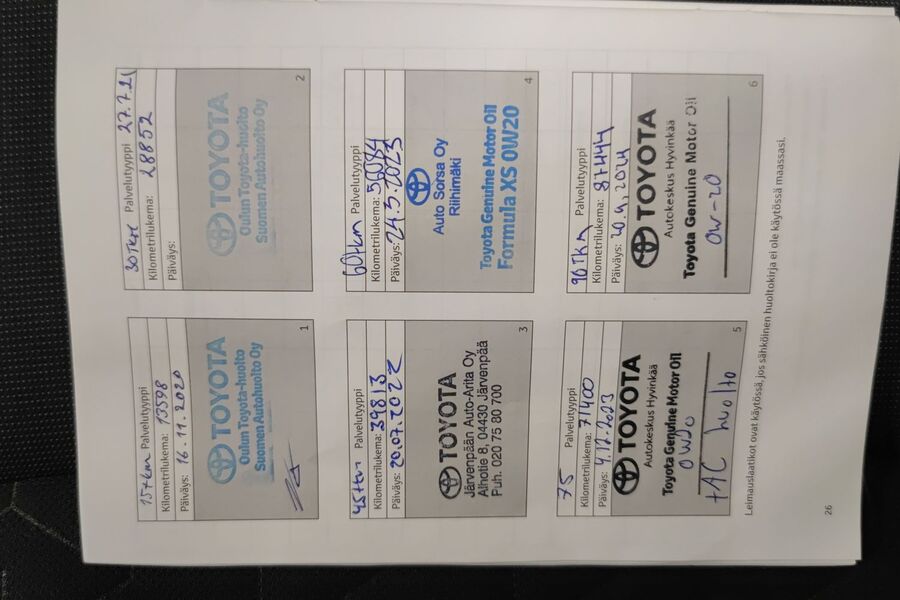 15tkm Palvelutyyppi
Kilometrilukema: 13598
Päiväys: 16.11.2020
TOYOTA
Oulun Toyota-huolto
Suomen Autohuolto Oy
1
30Tkm Palvelutyyppi 27.7.21
Kilometrilukema: 28852
Päiväys:
TOYOTA
Oulun Toyota-huolto
Suomen Autohuolto Oy
2
45tkm Palvelutyyppi
Kilometrilukema: 39813
Päiväys: 20.07.2022
TOYOTA
Järvenpään Auto-Arita Oy
Alhotie 8, 04430 Järvenpää
Puh. 020 75 80 700
3
60tkm Palvelutyyppi
Kilometrilukema: 56084
Päiväys: 24.5.2023
Auto Sorsa Oy
Riihimäki
Toyota Genuine Motor Oil
Formula XS 0W20
4
75 Palvelutyyppi
Kilometrilukema: 71400
Päiväys: 4.12.2023
TOYOTA
Autokeskus Hyvinkää
Toyota Genuine Motor Oil
0W20
+AC huolto
5
90TKM Palvelutyyppi
Kilometrilukema: 87444
Päiväys: 20.9.2024
TOYOTA
Autokeskus Hyvinkää
Toyota Genuine Motor Oil
0W-20
6
Leimauslaatikot ovat käytössä, jos sähköinen huoltokirja ei ole käytössä maassasi.
26